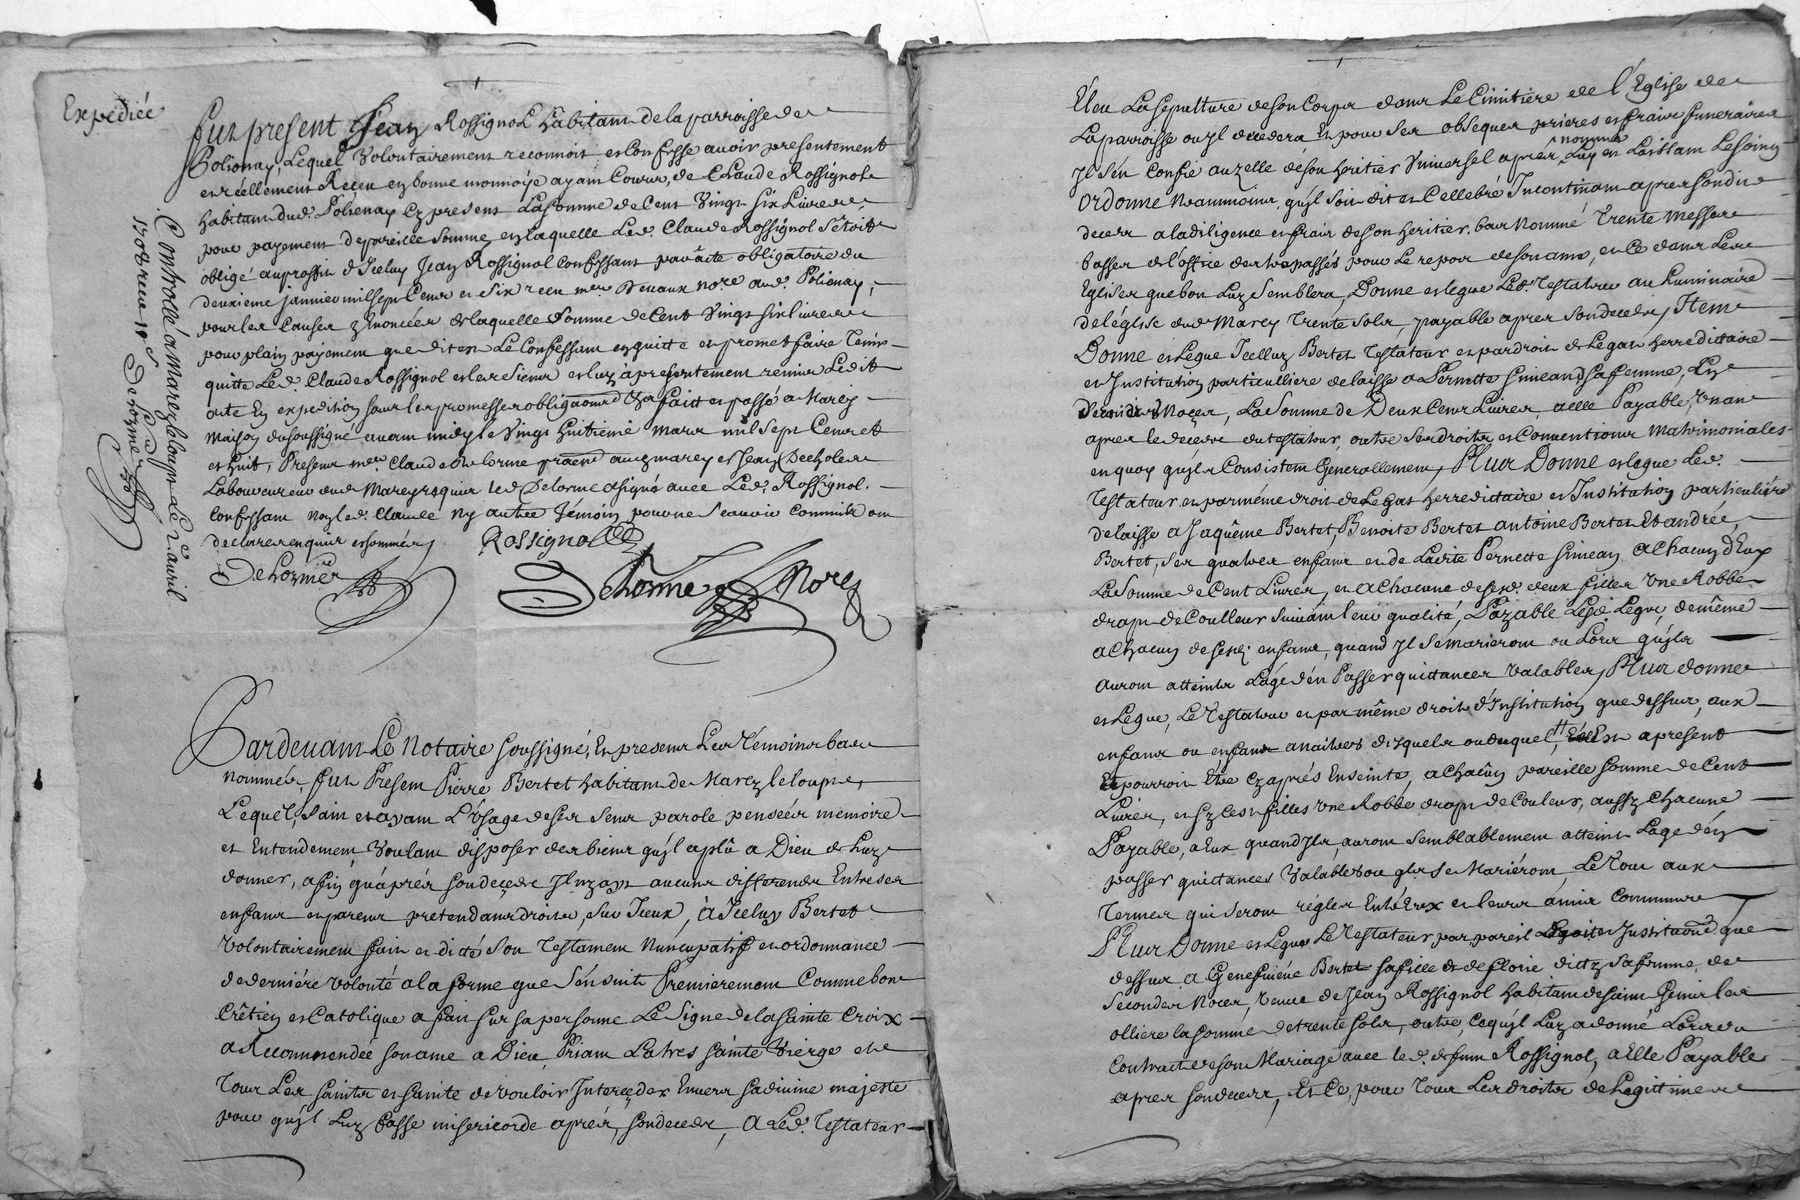 Expediée
Controllé a Marey Leloup Le 2 avril
1708 receu
Delorme
fut present Jean Rossignol habitant de la parroisse de
Polionay, Lequel Volontairement reconnoit et Confesse avoir presentement
et reellement Receu en bonne monnoye ayant Cours, de Claude Rossignol
habitant dud. Polionay cy present La Somme de Cent Vingt six Livres
pour payement de pareille Somme en laquelle Led. Claude Rossignol s'etoit
obligé au proffit d'Iceluy Jean Rossignol Confessant par acte obligatoire du
deuxieme janvier mil sept Cens et six receu me. Devaux nore aud. Polionay,
pour les Causes y Enoncées de laquelle Somme de Cent Vingt six livres
pour plain payement que dit est Le Confessant en quitte et promet faire Tenir
quitte Led. Claude Rossignol et les siens et luy a presentement remis Ledit
acte En expedition sous les promesses obligaons fait et passé a Marey
Maison du soussigné avant midy le Vingt huitieme mars mil sept Cens et
et huit, Presens me. Claude Delorme au Marey et Jean
Laboureur aud Marey requis led Delorme a signé avec Led. Rossignol
Confessant non led. Claude ny autre Témoin pour ne sçavoir Comm'ils ont
declaré enquis et sommés
Rossignol
Delorme
Delorme Nore
Pardevant Le Notaire soussigné, En presens Les Témoins bas
nommés, fut Present Pierre Bertet habitant de Marey le loup,
Lequel, sain et ayant L'Usage de ses sens parole pensées memoire
et Entendement, Voulant disposer des biens qu'il a plû a Dieu de luy
donner, afin qu'aprés son decede Il n'y ayt aucuns differends Entre ses
enfans et parens pretendans droits, sur Iceux, à Iceluy Bertet
Volontairement fait et dicté son Testament nuncupatif et ordonnance
de derniére volonté a la forme que s'ensuit Premierement Comme bon
Crêtien et Catolique a fait sur sa personne Le Signe de la sainte Croix
a Recommendée son ame a Dieu, Priant La tres sainte Vierge et
Tous Les saints et saintes de vouloir Interceder Envers sa divine majesté
pour qu'il Luy fasse misericorde aprés, son decede, A Led. Testateur
Eleu La sepulture de son Corps dans Le Cimitiere de l'Eglise de
La parroisse ou il decedera Et pour ses obseques prieres et frais funeraires
Il s'en Confie au zelle de son heritier Universel aprés nommé Luy en Laissant Le soing
Ordonne Neanmoins, qu'il soit dit et Cellebré Incontinant apres son di
deces a la diligence et frais de son heritier, bas Nommé Trente Messes
basses de l'office des trepassés pour le repos de son ame, et Ce dans Les
Eglises que bon Luy Semblera, Donne et legue Led. Testateur au Luminaire
de l'église dud Marey Trente sols, payable apres son decede, Item
Donne et Legue Icelluy Bertet Testateur et par droit de Legat herreditaire
et Institution particulliere delaisse a Pernette Simeand sa femme, En
Noçes, La Somme de Deux Cens Livres, a elle Payable, Un an
apres le decede du testateur, outre ses droits et Conventions Matrimoniales
en quoy qu'ils Consistent Generallement, Plus Donne et legue Led.
Testateur et par même droit de Legat herredittaire et Institution particuliére
delaisse a Jaquême Bertet, Benoite Bertet antoine Bertet Et andrée
Bertet, ses quatres enfans et de Ladite Pernette Simean, a Chacun d'Eux
La Somme de Cent Livres, et a Chacune de sesd. deux filles Une Robbe
drap de Coulleur suivant leur qualité, Payable Lesd Legs, de même
a Chacun de sesd. enfans, quand Il se marieront ou Lors qu'ils
auront atteints L'age d'en Passer quittances Valables, Plus donne
et Legue, Le Testateur et par même droit d'Institution que dessus, aux
enfans ou enfans a naitres desquels ou duquel, Elle Est a present
Et pourroit être cy aprés Enseinte, a Chacun pareille Somme de Cent
Livres, et sy les filles Une Robbe drap de Couleur, aussy Chacune
Payable, a Eux quand Ils, auront semblablement atteint L'age d'en
passer quittances Valables ou qu'ils se Mariéront, Le Tout aux
Termes qui seront réglés Entr'Eux et leurs amis Communs
Plus Donne et Legue Le Testateur par pareil Institaon que
dessus a Genefvieve Bertet sa fille et de Florie sa femme, de
Secondes Noces, Veuve de Jean Rossignol habitant de saint Genis les
ollieres la somme de trente sols, outre, Ce qu'il Luy a donné Lors du
Contract de son Mariage avec led. defunt Rossignol, a Elle Payable
apres son deces, Et Ce, pour Tous Les droits de Legittime